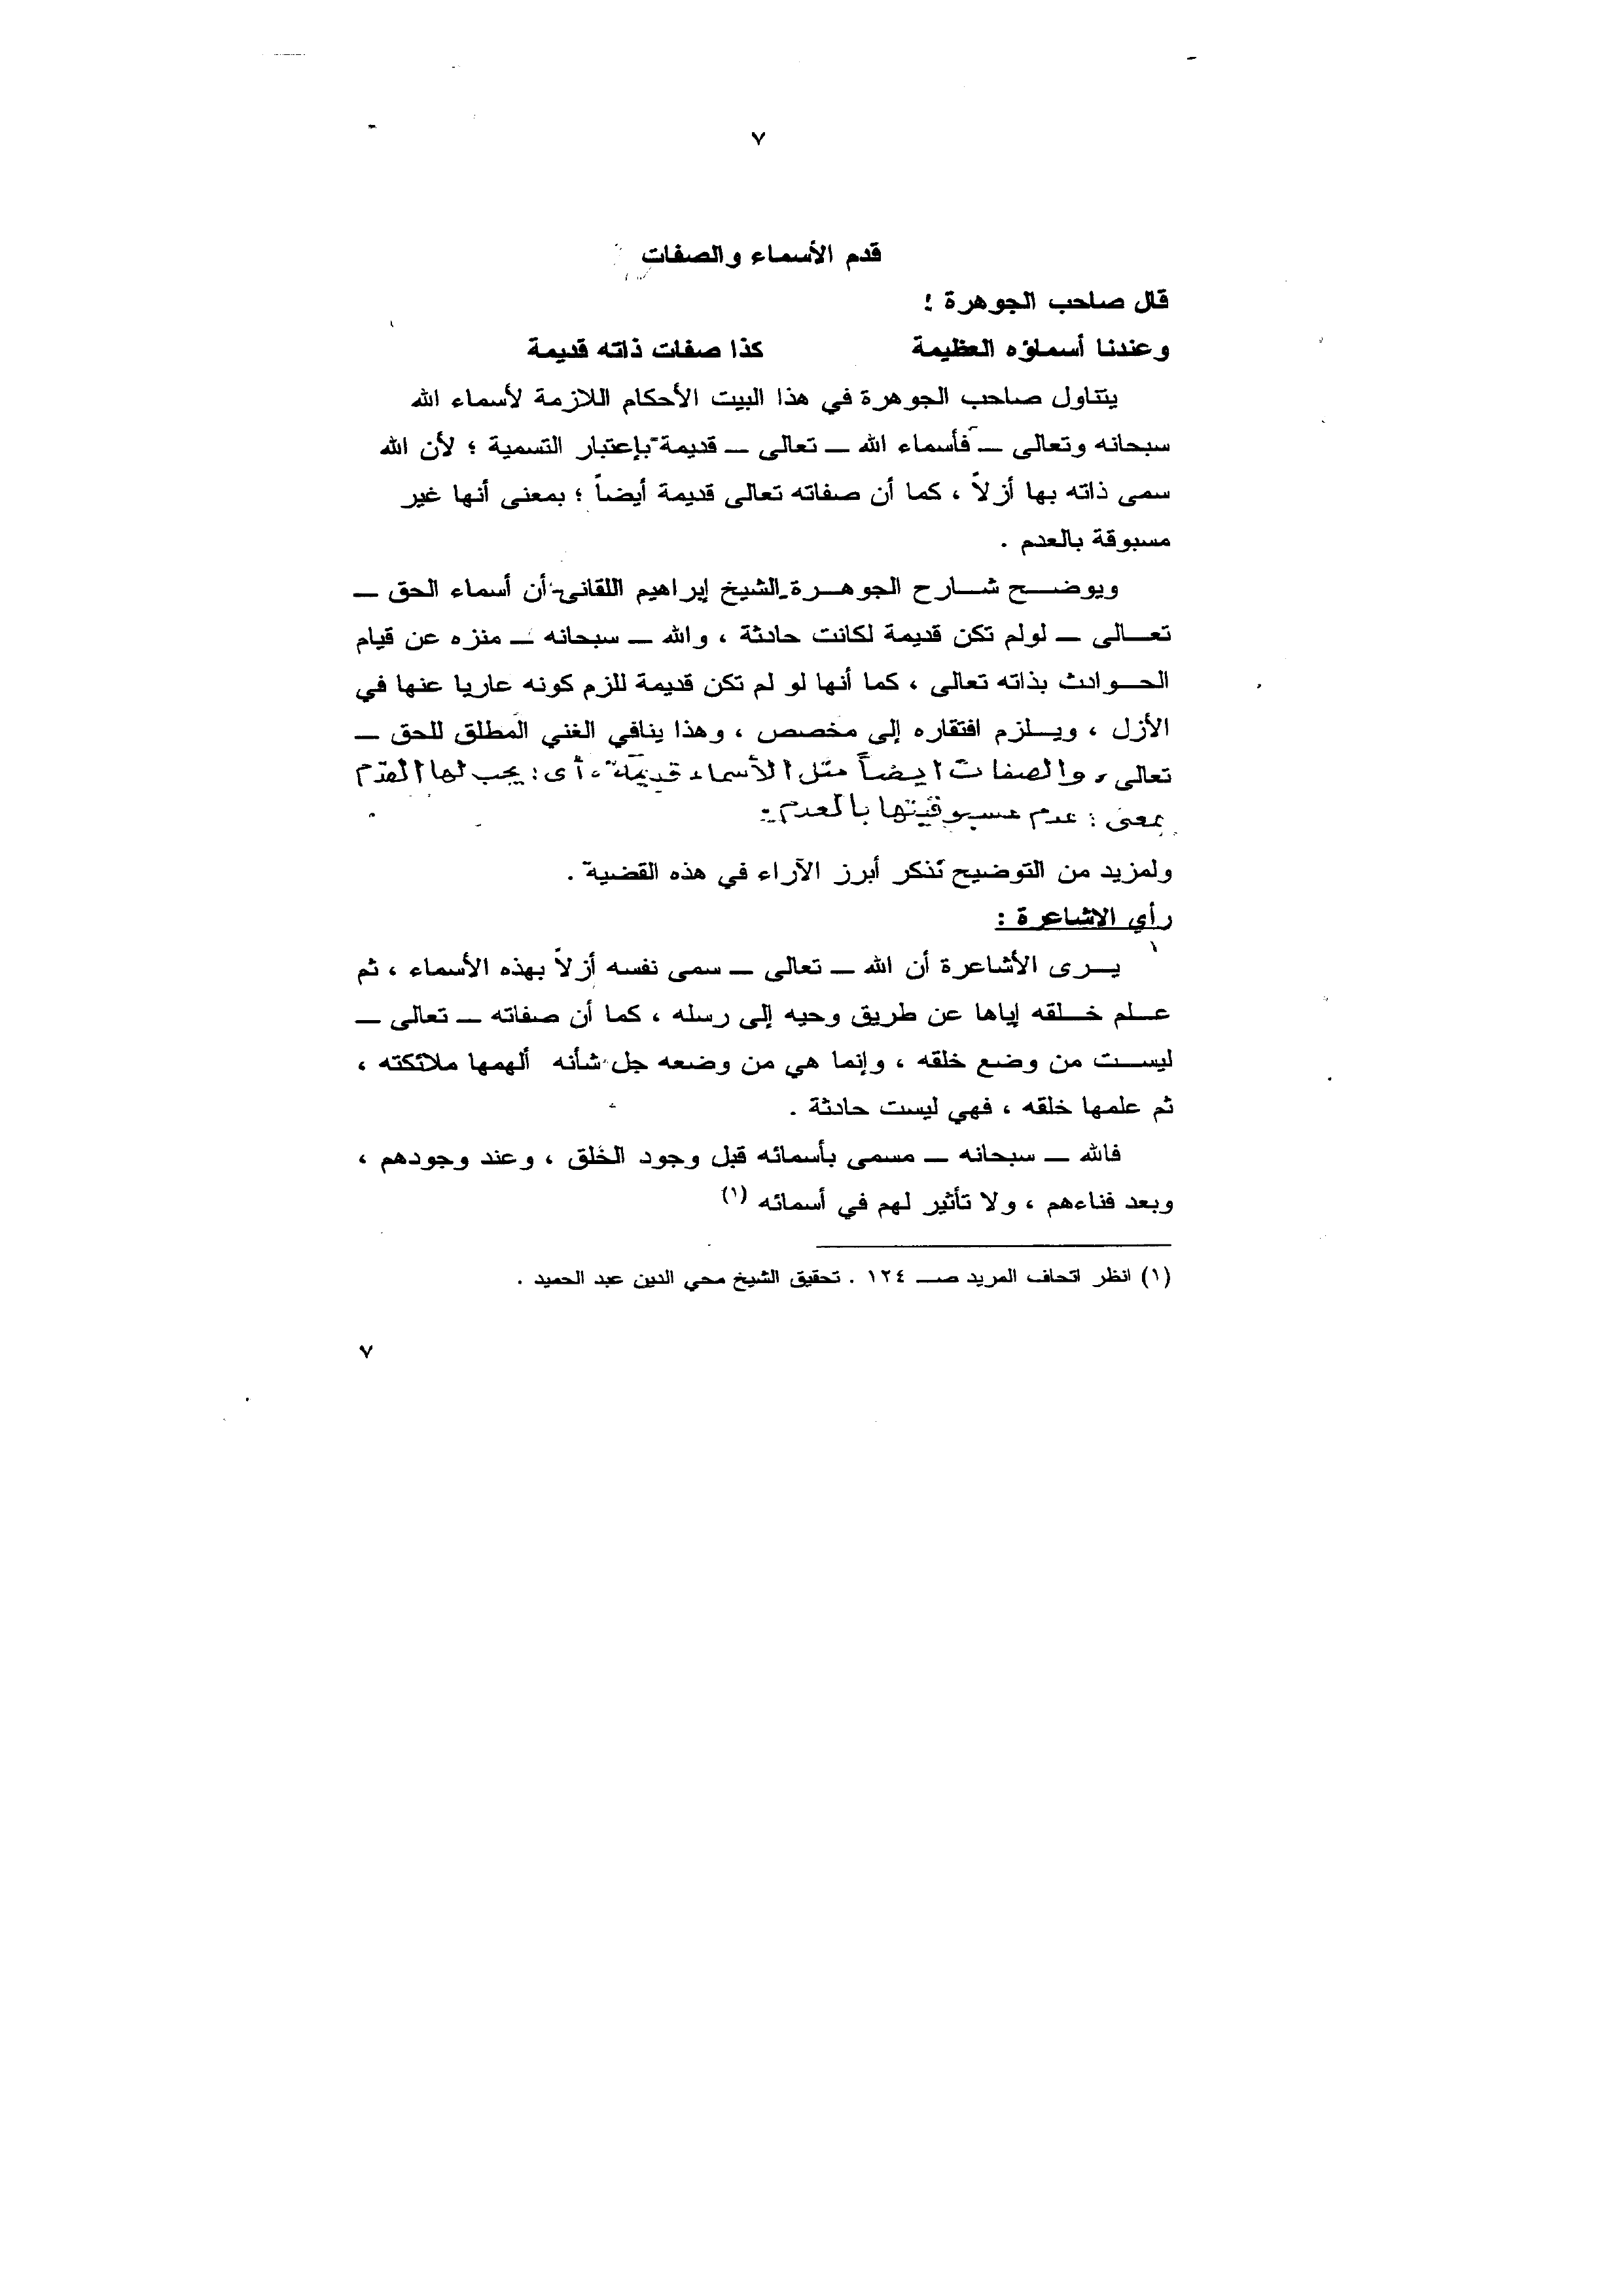 ٧
قدم الأسماء والصفات
قال صاحب الجوهرة :
وعندنا أسماؤه العظيمة كذا صفات ذاته قديمة
يتناول صاحب الجوهرة في هذا البيت الأحكام اللازمة لأسماء الله
سبحانه وتعالى ــ فأسماء الله ــ تعالى ــ قديمة بإعتبار التسمية ؛ لأن الله
سمى ذاته بها أزلاً ، كما أن صفاته تعالى قديمة أيضاً ؛ بمعنى أنها غير
مسبوقة بالعدم .
ويوضح شارح الجوهرة - الشيخ إبراهيم اللقانى - أن أسماء الحق ــ
تعالى ــ لولم تكن قديمة لكانت حادثة ، والله ــ سبحانه ــ منزه عن قيام
الحوادث بذاته تعالى ، كما أنها لو لم تكن قديمة للزم كونه عاريا عنها في
الأزل ، ويلزم افتقاره إلى مخصص ، وهذا ينافي الغني المطلق للحق ــ
تعالى ، والصفات أيضاً مثل الأسماء قديمة ، أى : يجب لها القدم
بمعنى : عدم مسبوقيتها بالعدم .
ولمزيد من التوضيح نذكر أبرز الآراء في هذه القضية .
رأي الاشاعرة :
يرى الأشاعرة أن الله ــ تعالى ــ سمى نفسه أزلاً بهذه الأسماء ، ثم
علم خلقه إياها عن طريق وحيه إلى رسله ، كما أن صفاته ــ تعالى ــ
ليست من وضع خلقه ، وإنما هي من وضعه جل شأنه ألهمها ملائكته ،
ثم علمها خلقه ، فهي ليست حادثة .
فالله ــ سبحانه ــ مسمى بأسمائه قبل وجود الخلق ، وعند وجودهم ،
وبعد فناءهم ، ولا تأثير لهم في أسمائه (١)
(١) انظر اتحاف المريد صــ ١٢٤ . تحقيق الشيخ محي الدين عبد الحميد .
٧